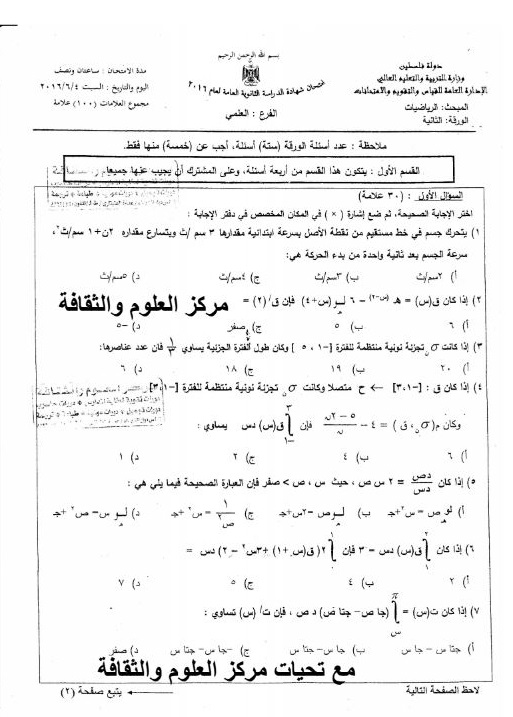 بسم الله الرحمن الرحيم
دولة فلسطين
وزارة التربية والتعليم العالي
الإدارة العامة للقياس والتقويم والامتحانات
المبحث: الرياضيات
الورقة: الثانية
امتحان شهادة الدراسة الثانوية العامة لعام ٢٠١٦
الفرع : العلمي
مدة الامتحان : ساعتان ونصف
اليوم والتاريخ : السبت ٢٠١٦/٦/٤
مجموع العلامات (١٠٠) علامة
ملاحظة : عدد أسئلة الورقة (ستة) أسئلة، أجب عن (خمسة) منها فقط.
القسم الأول : يتكون هذا القسم من أربعة أسئلة، وعلى المشترك أن يجيب عنها جميعا
السؤال الأول : (٣٠ علامة)
اختر الإجابة الصحيحة، ثم ضع إشارة ( × ) في المكان المخصص في دفتر الإجابة :
١) يتحرك جسم في خط مستقيم من نقطة الأصل بسرعة ابتدائية مقدارها ٣ سم /ث ويتسارع مقداره ٢ن+١ سم/ث٢،
سرعة الجسم بعد ثانية واحدة من بدء الحركة هي:
أ) ٢سم/ث ب) ٣سم/ث ج) ٤سم/ث د) ٥سم/ث
٢) إذا كان ق(س) = هـ (س-٢) – ٦ لـو (س+٤) فإن ق/ (٢) =
أ) ٦ ب) ٥ ج) صفر د) –٥
مركز العلوم والثقافة
٣) إذا كانت σن تجزئة نونية منتظمة للفترة [–١ ، ٥ ] وكان طول الفترة الجزئية يساوي ١/٣ فإن عدد عناصرها:
أ) ٢٠ ب) ١٩ ج) ١٨ د) ٦
٤) إذا كان ق : [–٣،١] ← ح متصلا وكانت σن تجزئة نونية منتظمة للفترة [–٣،١]
وكان م(σن ، ق ) = ٤ – (٥ – ٢ن)/ن فإن ∫ ق(س) دس يساوي :
أ) ٦ ب) ٤ ج) ٢ د) ١
٥) إذا كان دص/دس = ٢ س ص ، حيث س ، ص > صفر فإن العبارة الصحيحة فيما يلي هي :
أ) لو ص = س٢+جـ ب) لـوص = ٢س+جـ ج) ١/ص٢ = س٢ +جـ د) لـو س= ص٢ +جـ
٦) إذا كان ∫ ق(س) دس = ٣ فإن ∫ ٢( ق(س+١) + ٣س٢ – ٢) دس =
أ) ٢ ب) ٤ ج) ٥ د) ٧
٧) إذا كان ت(س) = ∫ (جا ص– جتا ص) د ص ، فإن ت/ (س) تساوي :
أ) جتا س – جا س ب) جا س– جتا س ج) –جا س– جتا س د) صفر
مع تحيات مركز العلوم والثقافة
لاحظ الصفحة التالية
يتبع صفحة (٢)